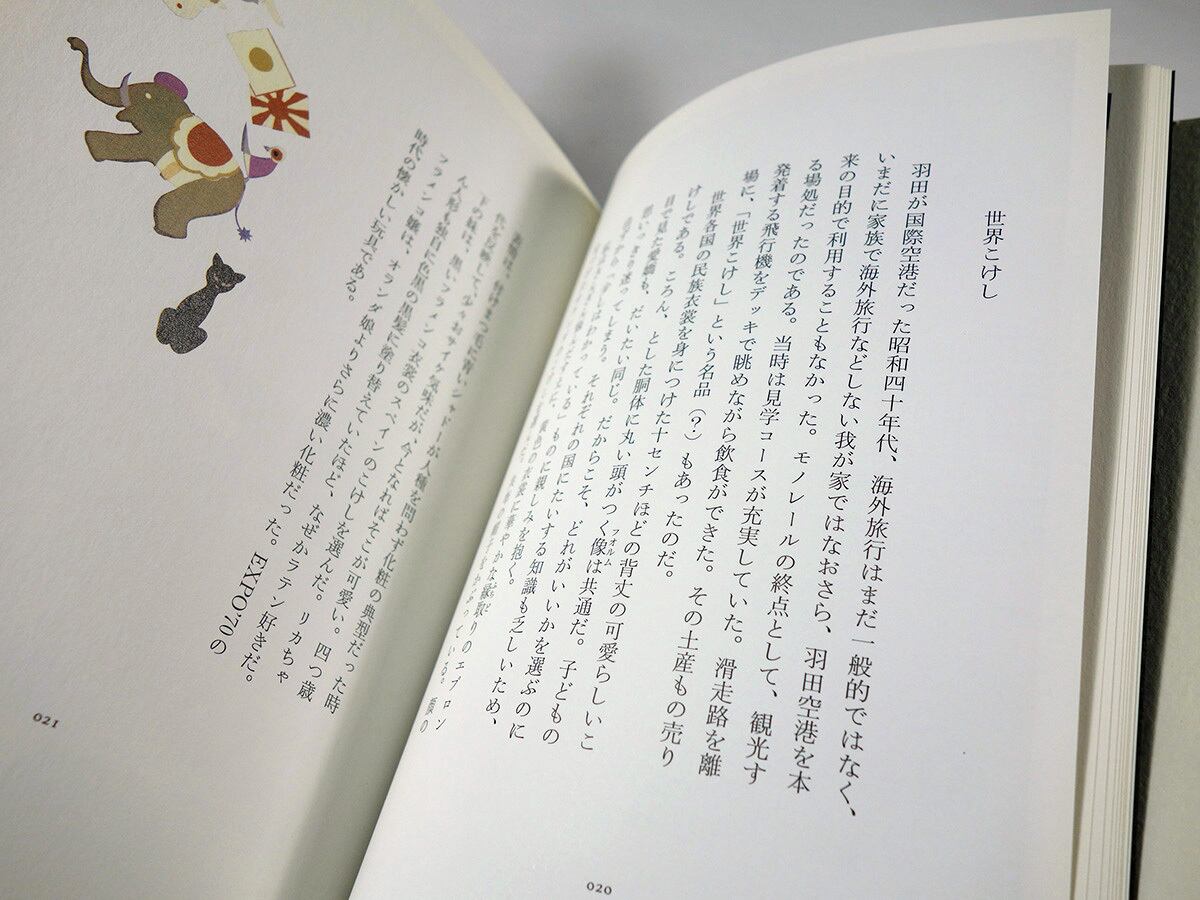 世界こけし
羽田が国際空港だった昭和四十年代、海外旅行はまだ一般的ではなく、
いまだに家族で海外旅行などしない我が家ではなおさら、羽田空港を本
来の目的で利用することもなかった。モノレールの終点として、観光す
る場処だったのである。当時は見学コースが充実していた。滑走路を離
発着する飛行機をデッキで眺めながら飲食ができた。その土産もの売り
場に、「世界こけし」という名品（？）もあったのだ。
世界各国の民族衣裳を身につけた十センチほどの背丈の可愛らしいこ
けしである。ころん、とした胴体に丸い頭がつく像は共通だ。子どもの
フオルム
目で見た愛嬌も、だいたい同じ。だからこそ、どれがいいかを選ぶのに
思いっきり迷ってしまう。それぞれの国にたいする知識も乏しいため、
ものに親しみを抱く。
縁取りのエプロン
かぶっている。顔の
020
下の妹は、少々おサイケ気味だが、今となればそこが可愛い。四つ歳
黒いフラメンコ衣裳のスペインのこけしを選んだ。リカちゃ
ん人形も独自に色黒の黒髪に塗り替えていたほど、なぜかラテン好きだ。
フラメンコ嬢は、オランダ娘よりさらに濃い化粧だった。EXPO'70の
時代の懐かしい玩具である。
021